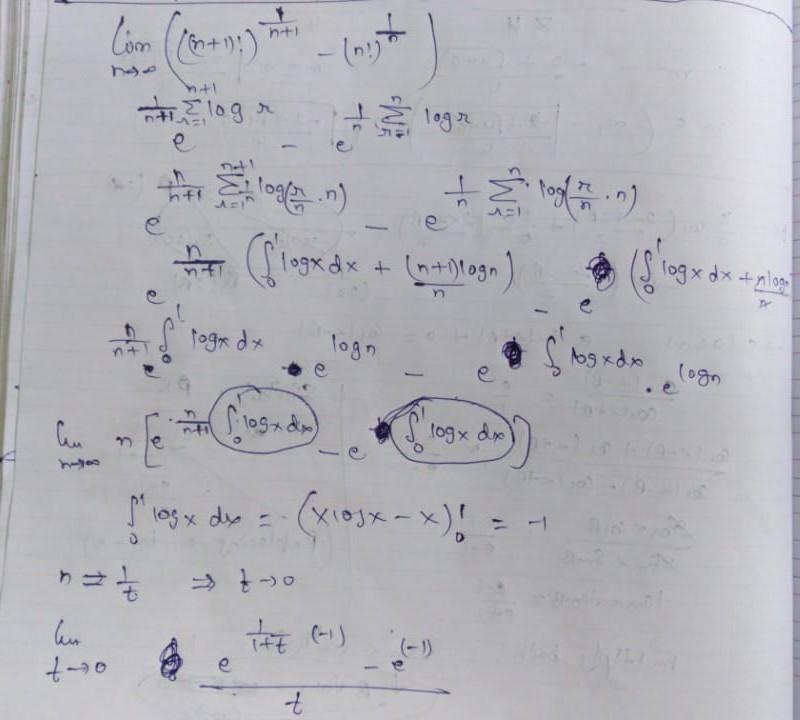 lim n→∞ (((n+1)!)^{1/(n+1)} − (n!)^{1/n})
e^{1/(n+1) Σ_{r=1}^{n+1} log r} − e^{1/n Σ_{r=1}^{n} log r}
e^{n/(n+1) Σ_{r=1}^{n+1} 1/n log(r/n · n)} − e^{1/n Σ_{r=1}^{n} log(r/n · n)}
e^{n/(n+1) (∫_0^1 log x dx + (n+1)log n / n)} − e^{(∫_0^1 log x dx + n log n / n}
e^{n/(n+1) ∫_0^1 log x dx} · e^{log n} − e^{∫_0^1 log x dx} · e^{log n}
lim n→∞ n [e^{n/(n+1) ∫_0^1 log x dx} − e^{∫_0^1 log x dx}]
∫_0^1 log x dx = (x log x − x)_0^1 = −1
n = 1/t ⇒ t→0
lim t→0 (e^{1/(1+t) (−1)} − e^{(−1)}) / t